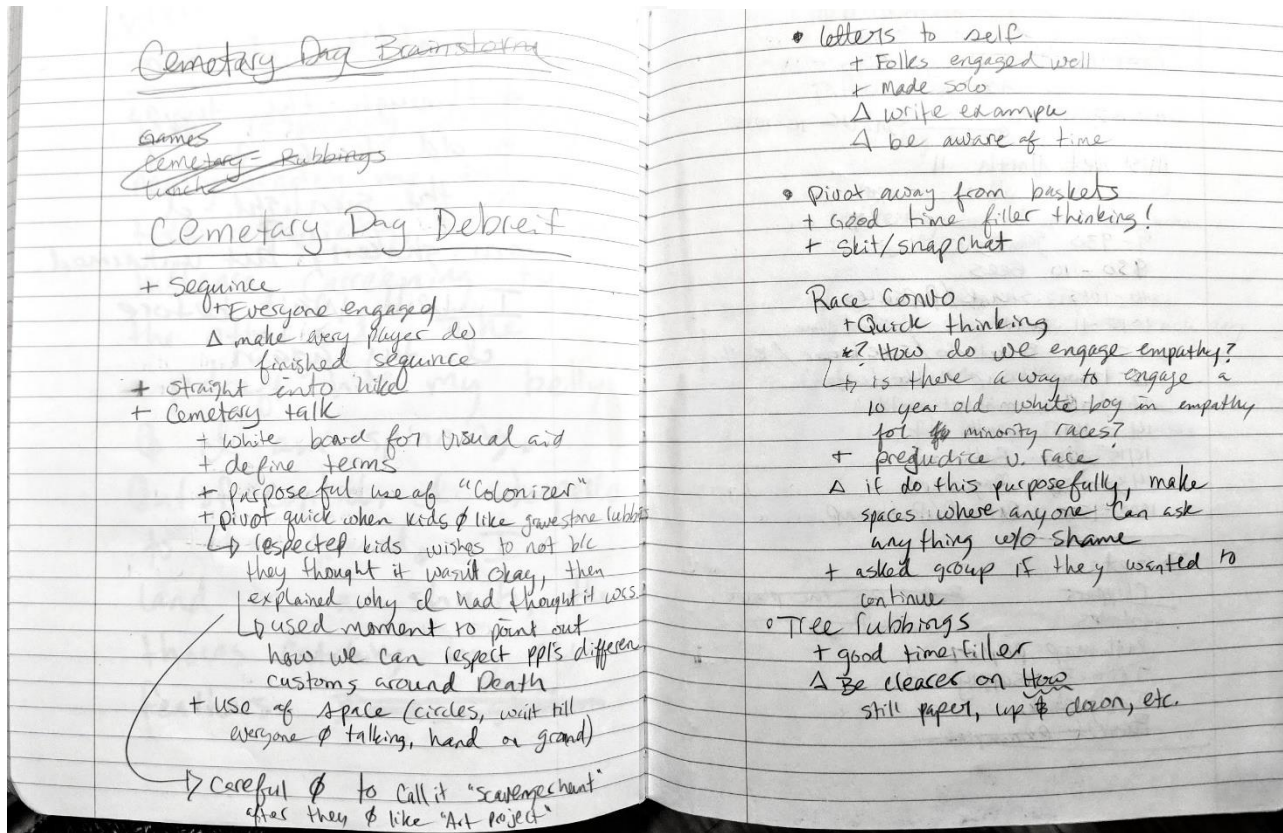 Cemetary Day Brainstorm
Games
Cemetary - Rubbings
Lunch
Cemetary Day Debreif
+ Sequince
+ Everyone engaged
Δ make every player do
finished sequince
+ straight into hike
+ Cemetary talk
+ white board for visual aid
+ define terms
+ purposeful use of "Colonizer"
+ pivot quick when kids ∅ like gravestone rubbis
↳ respected kids wishes to not b/c
they thought it wasn't okay, then
explained why I had thought it was.
↳ used moment to point out
how we can respect ppl's differen
customs around Death
+ use of space (circles, wait till
everyone ∅ talking, hand on grand)
→ Careful ∅ to call it "scavengehunt"
after they ∅ like "Art project"
• letters to self
+ Folks engaged well
+ Made solo
Δ write example
Δ be aware of time
• Pivot away from baskets
+ Good time filler thinking!
+ skit/snapchat
Race Convo
+ Quick thinking
*? How do we engage empathy?
↳ is there a way to engage a
10 year old white boy in empathy
for minority races?
+ prejudice v. race
Δ if do this purposefully, make
spaces where anyone can ask
anything w/o shame
+ asked group if they wanted to
continue
• Tree rubbings
+ good time filler
Δ Be clearer on How
still paper, up & down, etc.